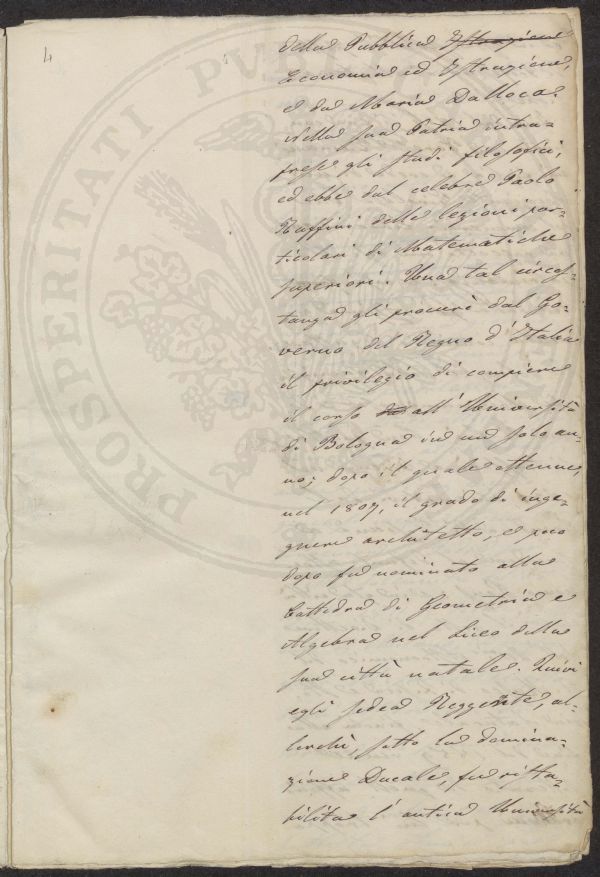 4
della Pubblica Istruzione
Economia ed Istruzione,
e da Maria Dalloca.
Nella sua Patria intra-
prese gli studi filosofici,
ed ebbe dal celebre Paolo
Ruffini delle lezioni par-
ticolari di Matematiche
superiori. Una tal circos-
tanza gli procurò dal Go-
verno del Regno d'Italia
il privilegio di compiere
il corso all'Università
di Bologna in un solo an-
no; dopo il quale ottenne,
nel 1807, il grado di inge-
gnere architetto; e poco
dopo fu nominato alla
Cattedra di Geometria e
Algebra nel Liceo della
sua città natale. Quivi
egli sedea Reggente, al-
lorchè, sotto la domina-
zione Ducale, fu rista-
bilita l'antica Università
PROSPERITATI PVBL